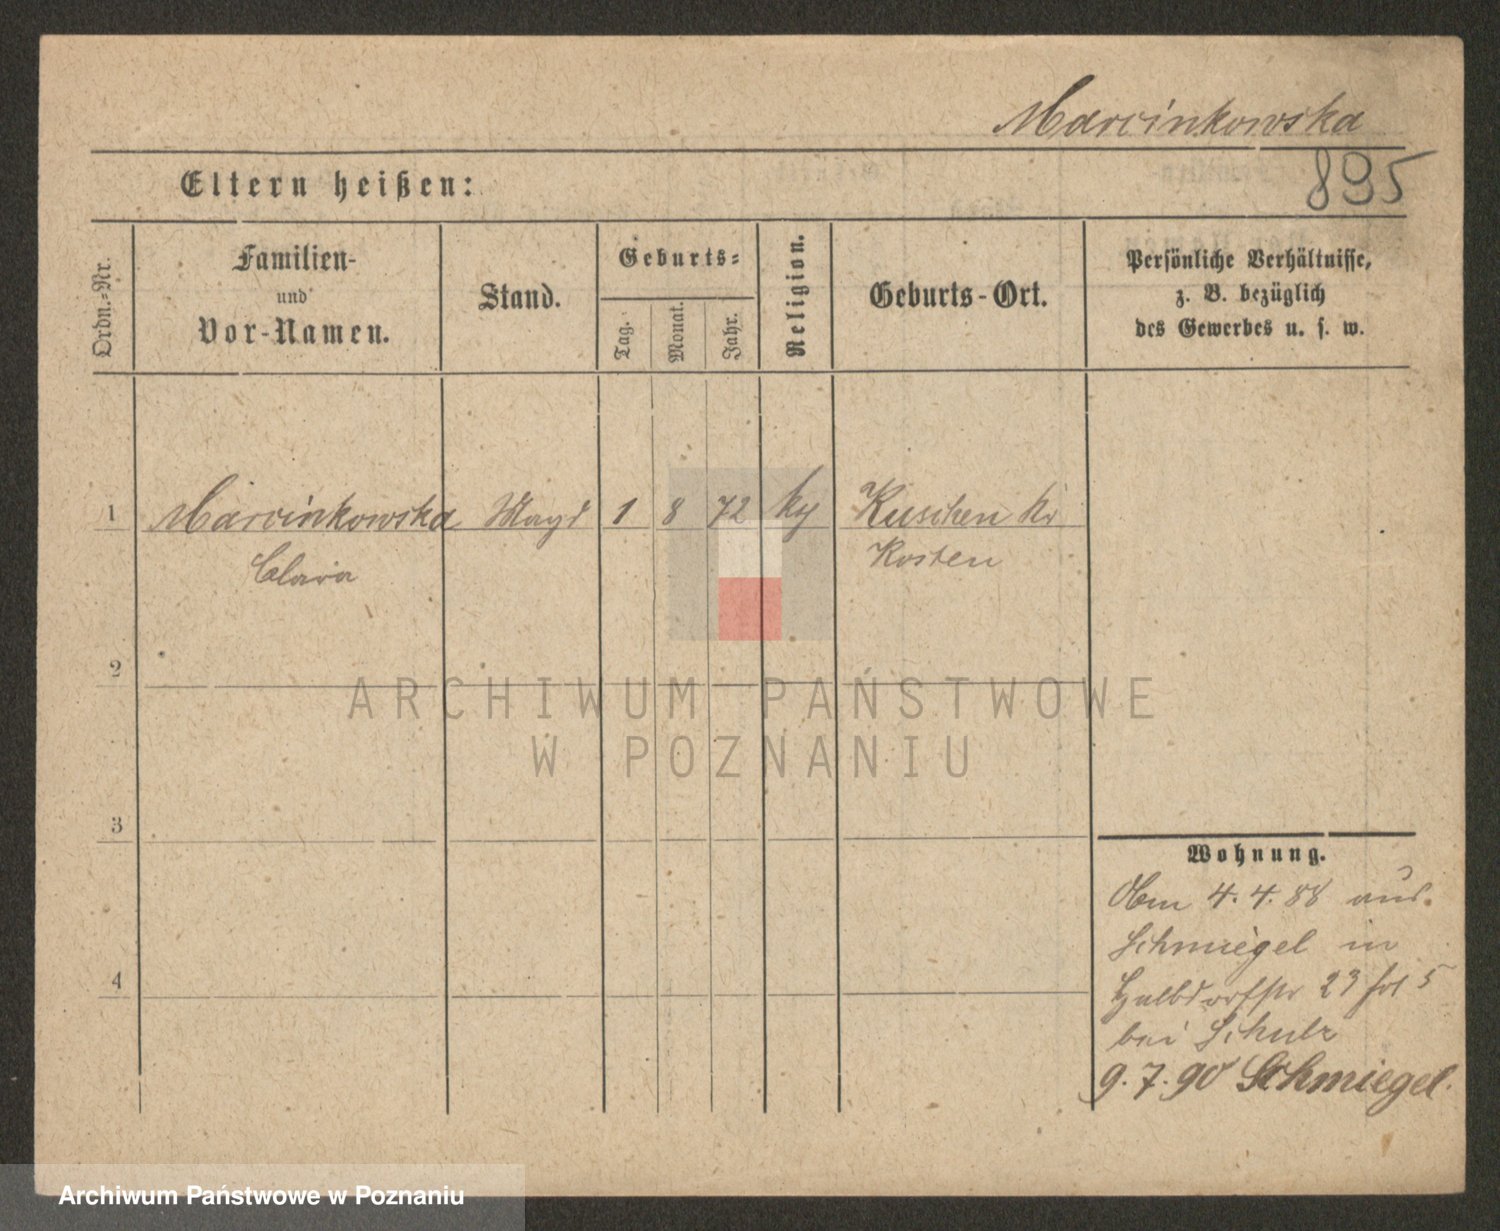 Marcinkowska
895
Eltern heißen:
Ordn.-Nr.
Familien-
und
Vor-Namen.
Stand.
Geburts-
Tag.
Monat.
Jahr.
Religion.
Geburts-Ort.
Persönliche Verhältnisse,
z. B. bezüglich
des Gewerbes u. s. w.
1 Marcinkowska Magd 1 8 72 Kuschen Kr
Clara Kosten
2
3
4
Wohnung.
4.4.88 aus
Schmiegel in
Halbdorfstr 23
bei Schulz
9.7.90 Schmiegel.
ARCHIWUM PAŃSTWOWE
W POZNANIU
Archiwum Państwowe w Poznaniu